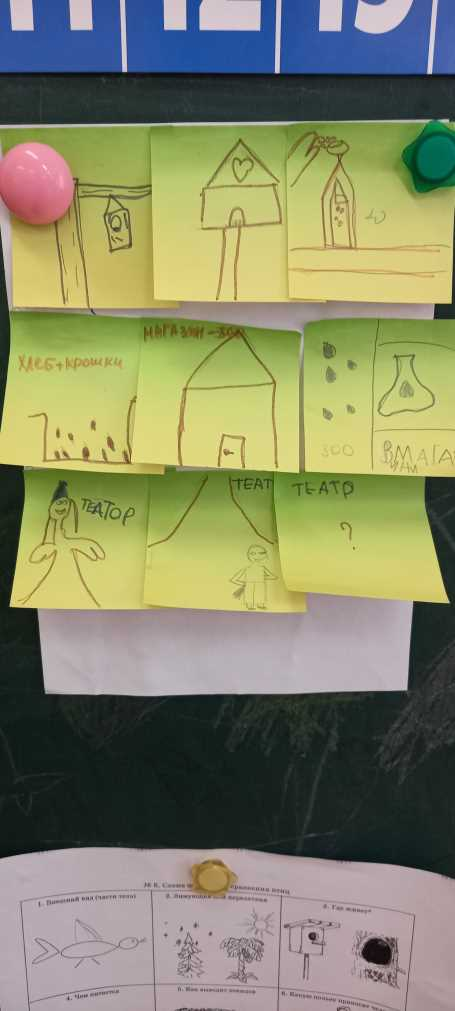 11 12 13
ХЛЕБ+крошки
МАГАЗИН-ЗОО
ЗОО
ВМАГА
ТЕАТОР
ТЕАТ
ТЕАТР
?
№ 8. Схема
сравнения птиц
1. Внешний вид (части тела)
2. Зимующая или перелетная
3. Где живет?
4. Чем питается
5. Как выводит птенцов
6. Какую пользу приносит